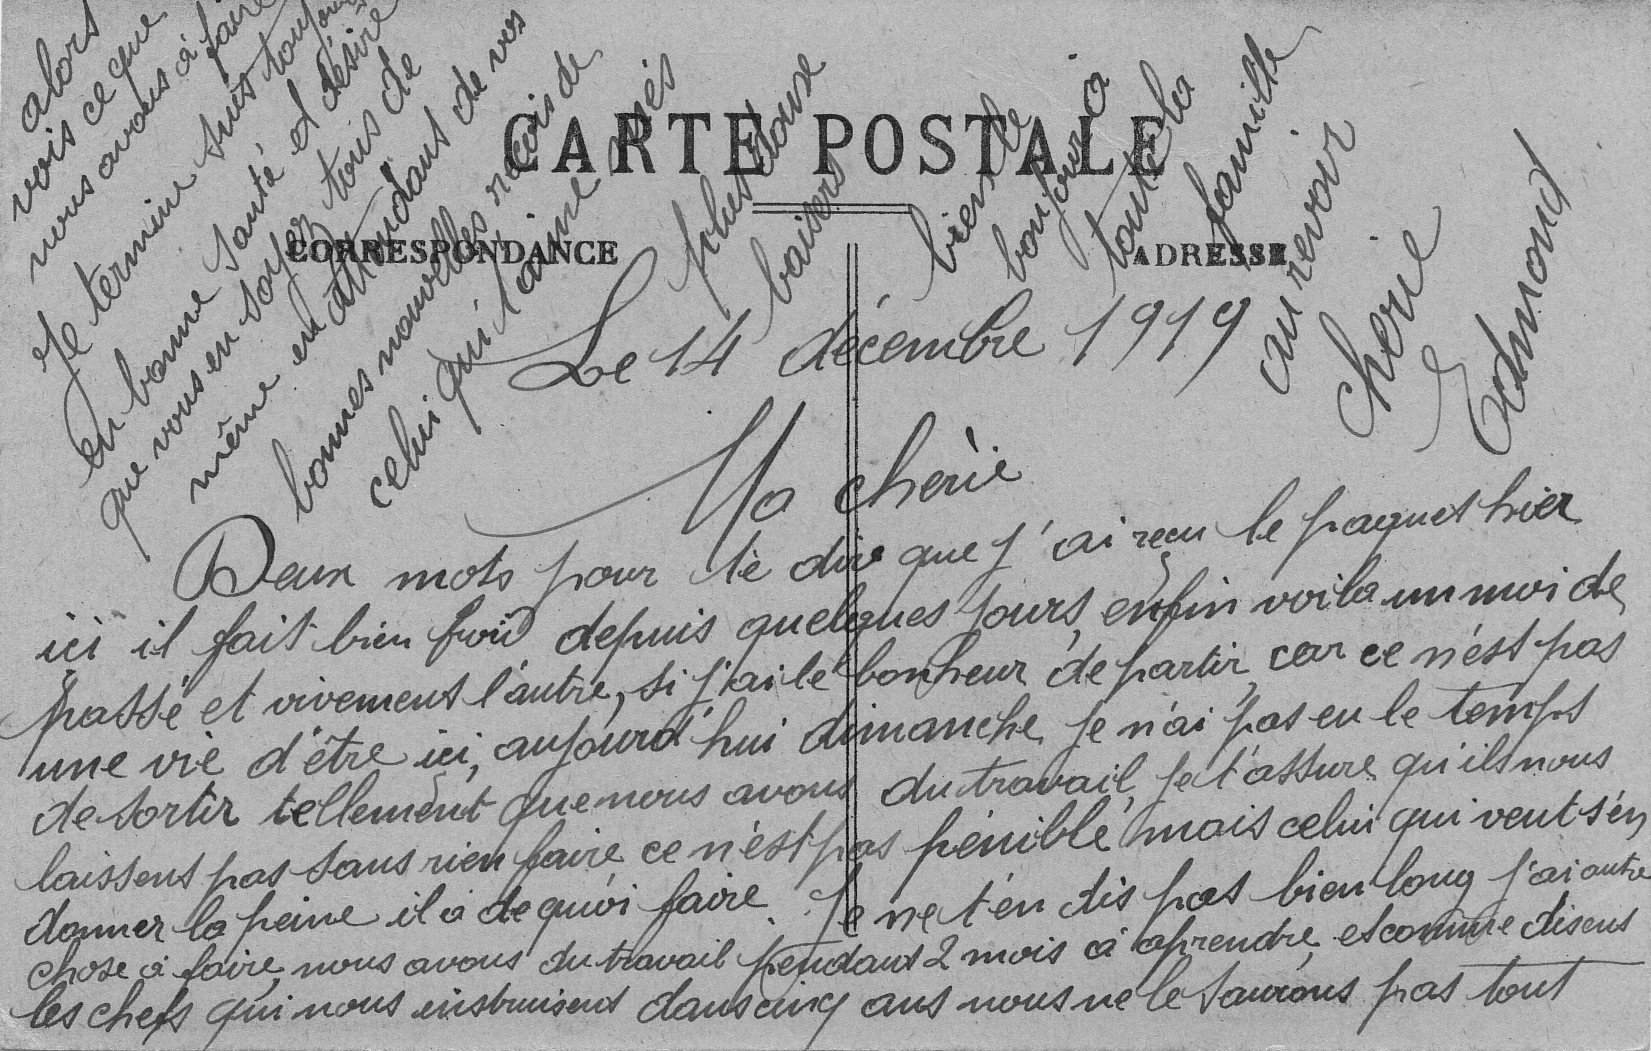 CARTE POSTALE
CORRESPONDANCE
ADRESSE
Le 14 décembre 1919
Ma cherie
Deux mots pour te dire que j'ai reçu le paquet hier
ici il fait bien froid depuis quelques jours, enfin voila un moi de
passé et vivement l'autre, si j'ai le bonheur de partir, car ce n'est pas
une vie d'être ici, aujourd'hui dimanche je n'ai pas eu le temps
de sortir tellement que nous avons du travail, je t'assure qu'ils nous
laissent pas sans rien faire ce n'est pas pénible mais celui qui veut s'en
donner la peine il a de quoi faire. Je ne t'en dis pas bien long j'ai autre
chose à faire, nous avons du travail pendant 2 mois à aprendre, et comme disent
les chefs qui nous instruisent dans cinq ans nous ne le saurons pas tout
alors
vois ce que
nous avons à faire
Je termine suis toujours
en bonne santé et désire
que vous en soyez tous de
même en attendant de vos
bonnes nouvelles reçois de
celui qui t'aime mes
plus doux
baisers
bien le
bonjour à
toute la
famille
au revoir
cherie
Edmond